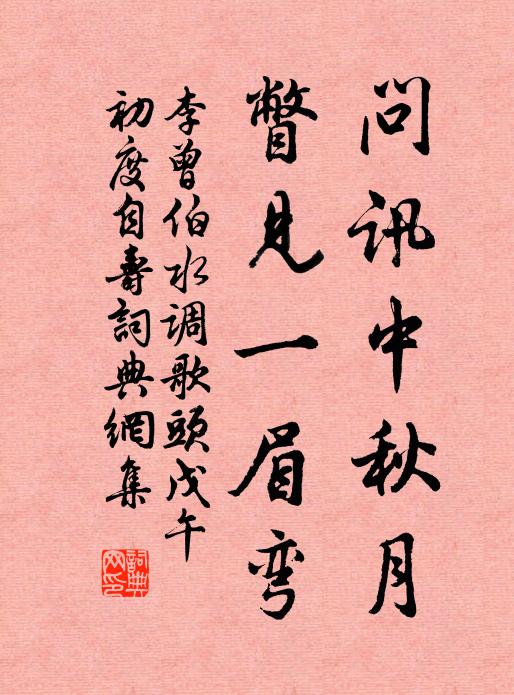 问讯中秋月
瞥见一眉弯
李曾伯水调歌头戊午
初度自寿词典網集
詞典网印